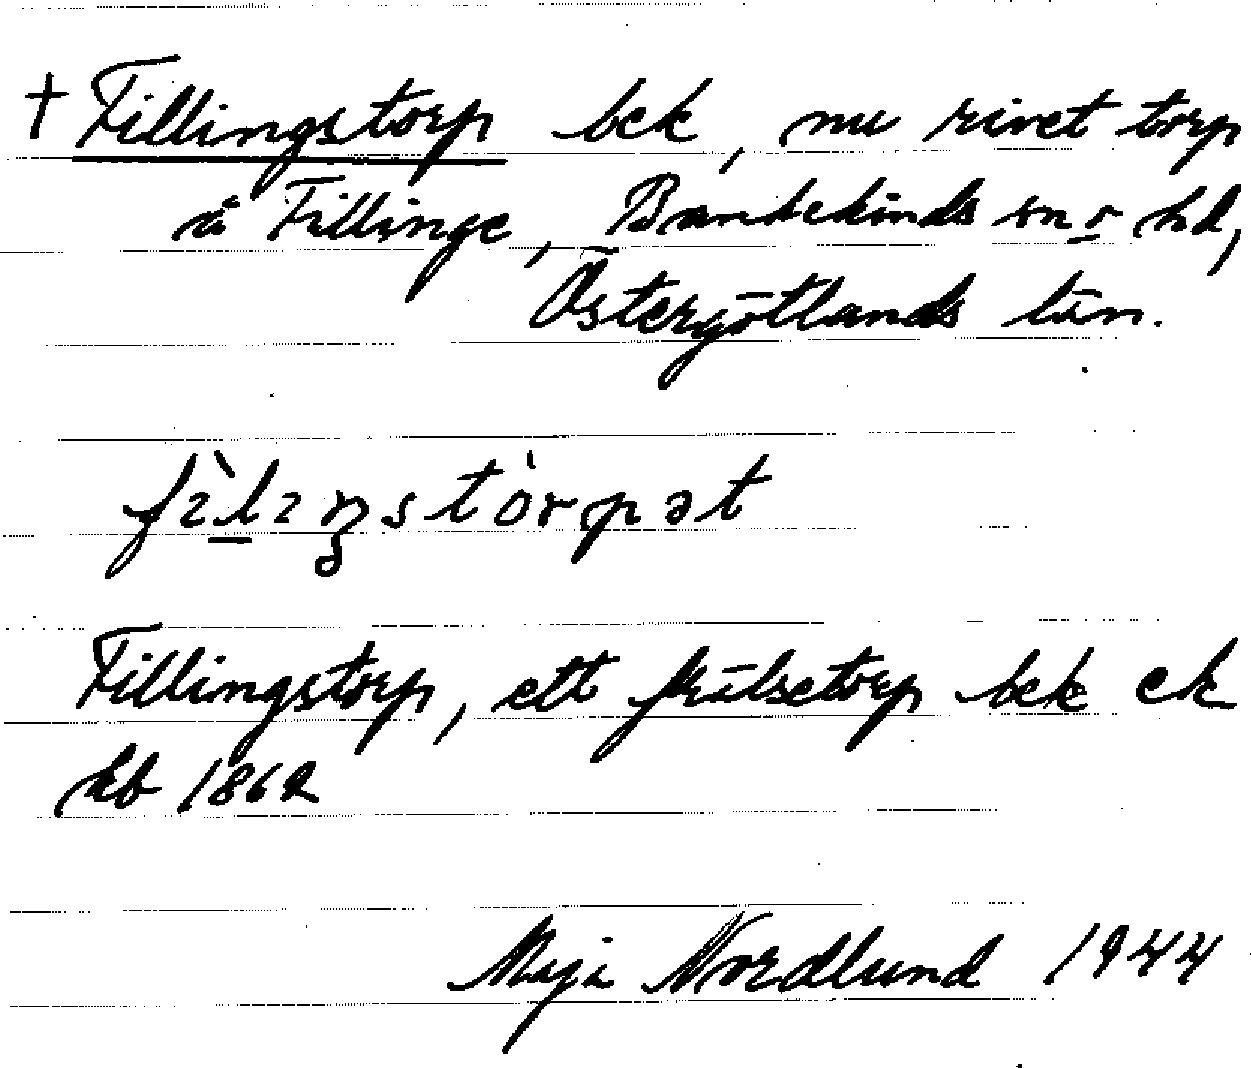 † Fillingstorp bek, nu rivet torp
å Fillinge, Bankekinds sn o hd,
Östergötlands län.
Fillingstorp, ett frälsetorp bek ek
kb 1862
Maja Nordlund 1944